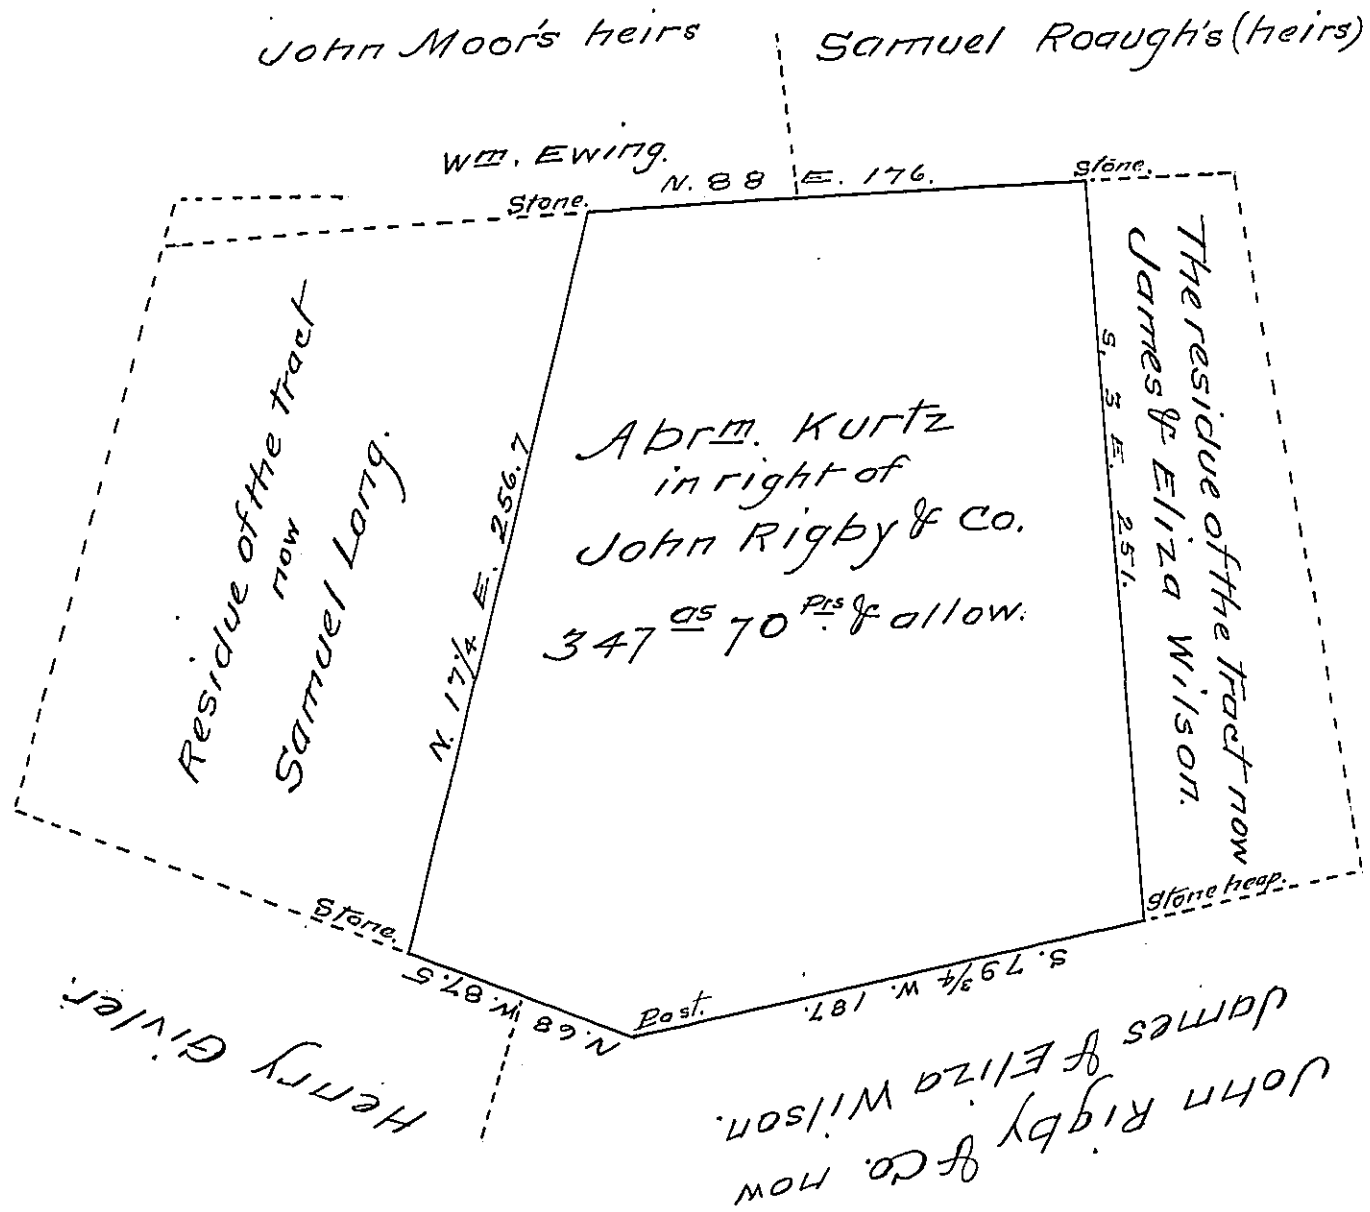 John Moor's heirs
Samuel Roaugh's (heirs)
Wm. Ewing.
N. 88 E. 176.
Stone.
Stone.
Residue of the tract
now
Samuel Lang.
N. 17 1/4 E. 256.7
Abrm. Kurtz
in right of
John Rigby & Co.
347 as 70 Prs & allow.
S. 3 E. 251.
The residue of the tract now
James & Eliza Wilson.
Stone.
Stone heap.
N. 68 W. 87.5
Post.
S. 79 3/4 W. 187.
Henry Givler.
John Rigby & Co. now
James & Eliza Wilson.